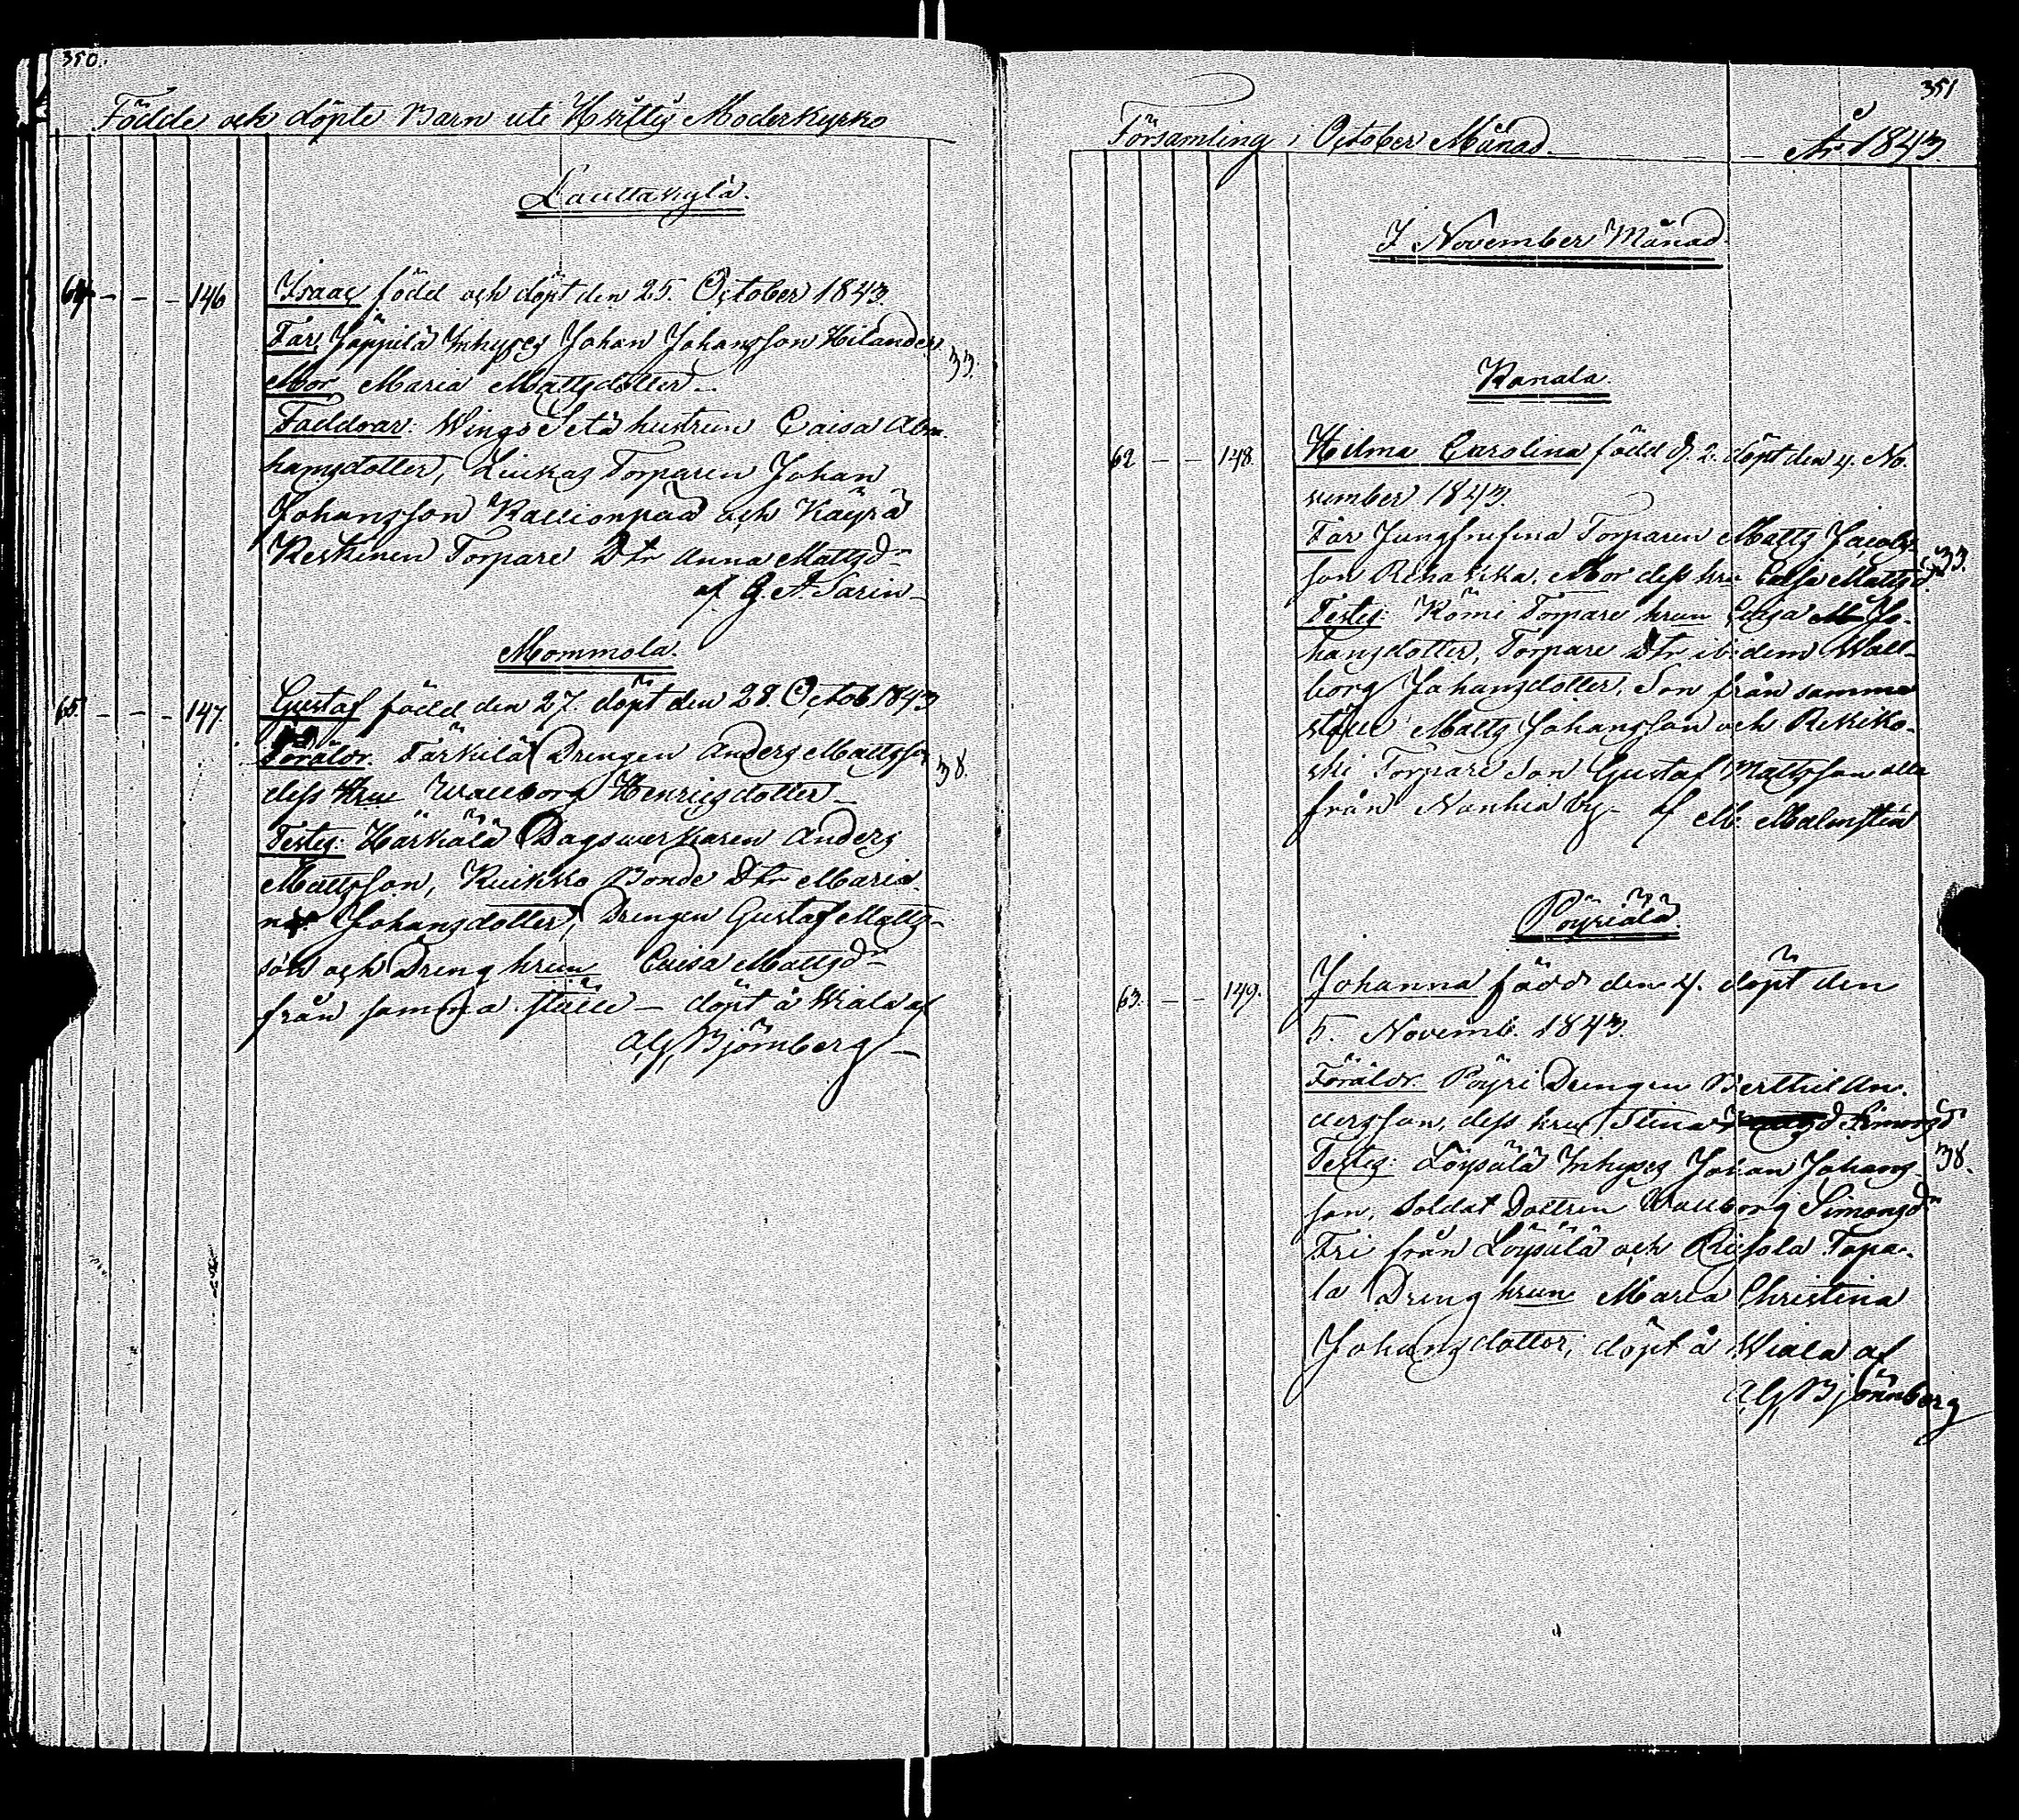 350.
Födde och döpte Barn uti Hvittis Moderkyrko
Lauttakylä.
64 - - - 146
Isaac född och döpt den 25. October 1843.
Far, Jäppilä Inhyses Johan Johansson Hilander
33.
Mor Maria Mattsdotter.
Faddrar: Wingo Setä hustrun Caisa Abra-
hamsdotter, Liukas Torparen Johan
Johansson Kallionpää och Käyrä
Keskinen Torpare Dtr Anna Mattsdr
af G. A. Sarin
Mommola.
65. - - - 147.
Gustaf född den 27. döpt den 28. Octob. 1843
Föräldr. Tärkilä Drengen Anders Mattsson
38.
dess hru Wallborg Henricsdotter
Testes: Härkälä Dagswerkaren Anders
Mattsson, Kuikko Bonde Dtr Maria
Johansdotter, Drengen Gustaf Matts-
son och Dreng hrun Caisa Mattsdr
från samma ställe - döpt å Wiala af
A G Björnberg
351
Församling i October Månad År 1843.
I November Månad.
Kanala.
62 - - 148.
Hilma Carolina född d. 2. döpt den 4. No-
vember 1843.
Far Torparen Matts Jacobs-
33.
son Mor dess hru Caisa Mattsd.
Testes: Kömi Torpare hrun Caisa Jo-
hansdotter, Torpare Dtr ibidem Wall-
borg Johansdotter, Son från samma
ställe Matts Johansson och Rekiko-
ski Torpare Son Gustaf Mattsson alla
från Nanhia by - af M. Malmstén
Pöyriälä.
63. - - 149.
Johanna född den 4. döpt den
5. Novemb. 1843.
Föräldr. Pöyri Drengen Berthil An-
dersson, dess hru Stina Simonsdr
Testes: Löysälä Inhyses Johan Johans-
38.
son, Soldat Dottren Wallborg Simonsdr
Fri från Löysälä och Tapa-
la Dreng hrun Maria Christina
Johansdotter, döpt å Wiala af
A G Björnberg